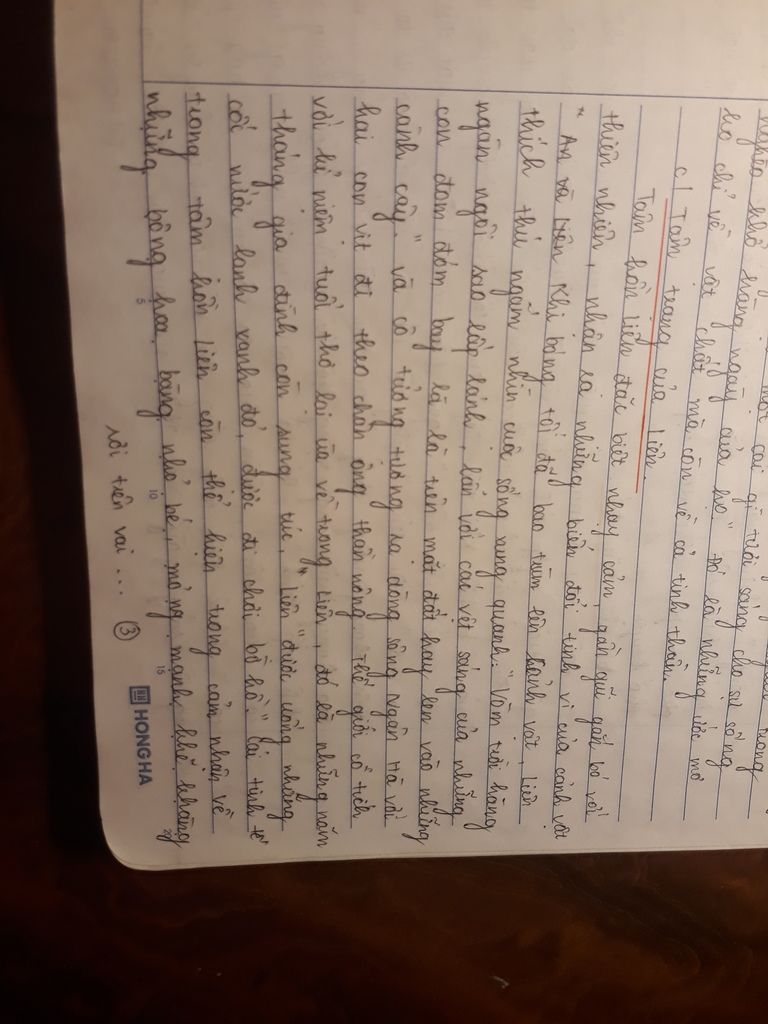 nghèo khổ hằng ngày của họ" Đó là những ước mơ
họ chỉ về vật chất mà còn về cả tinh thần.
c/ Tâm trạng của Liên.
Tâm hồn Liên đặc biệt nhạy cảm, gần gũi gắn bó với
thiên nhiên, nhận ra những biến đổi tinh vi của cảnh vật
* An và Liên Khi bóng tối đã bao trùm lên cảnh vật, Liên
thích thú ngắm nhìn cuộc sống xung quanh: "Vòm trời hàng
ngàn ngôi sao lấp lánh, lẫn với các vệt sáng của những
con đom đóm bay là là trên mặt đất hay len vào những
cành cây" và cô tưởng tượng ra dòng sông Ngân Hà với
hai con vịt đi theo chân ông thần nông. Thế giới cổ tích
với kỉ niệm tuổi thơ lại ùa về trong Liên, đó là những năm
tháng gia đình còn sung túc, "Liên "được uống những
cốc nước lạnh xanh đỏ, được đi chơi bờ hồ." Cái tinh tế
trong tâm hồn Liên còn thể hiện trong cảm nhận về
những bông hoa bàng nhỏ bé, mỏng manh khẽ khàng
rơi trên vai ... ③
5 10 15 20
HH HONG HA